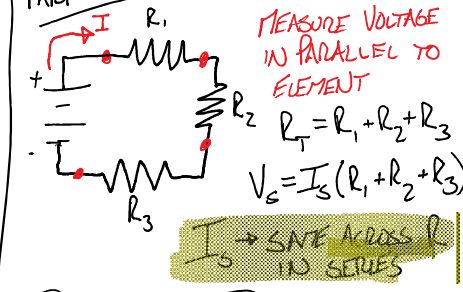 I
R₁
+
-
R₂
R₃
MEASURE VOLTAGE
IN PARALLEL TO
ELEMENT
R_T = R₁ + R₂ + R₃
V_s = I_s (R₁ + R₂ + R₃)
I_s → SAME ACROSS R
IN SERIES